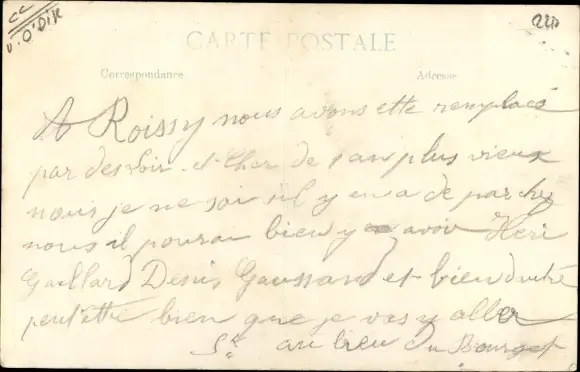 CC
v. O'DIK
220
CARTE POSTALE
Correspondance
Adresse
A Roissy nous avons ette remplacé
par des Loir et Cher de 1 an plus vieux
nous je ne sai sil y en a de par chez
nous il pourai bien y avoir Heri
Gaillard Denis Gaussand et bien dautre
peut ette bien que je vas y aller
St au lieu du Bourget